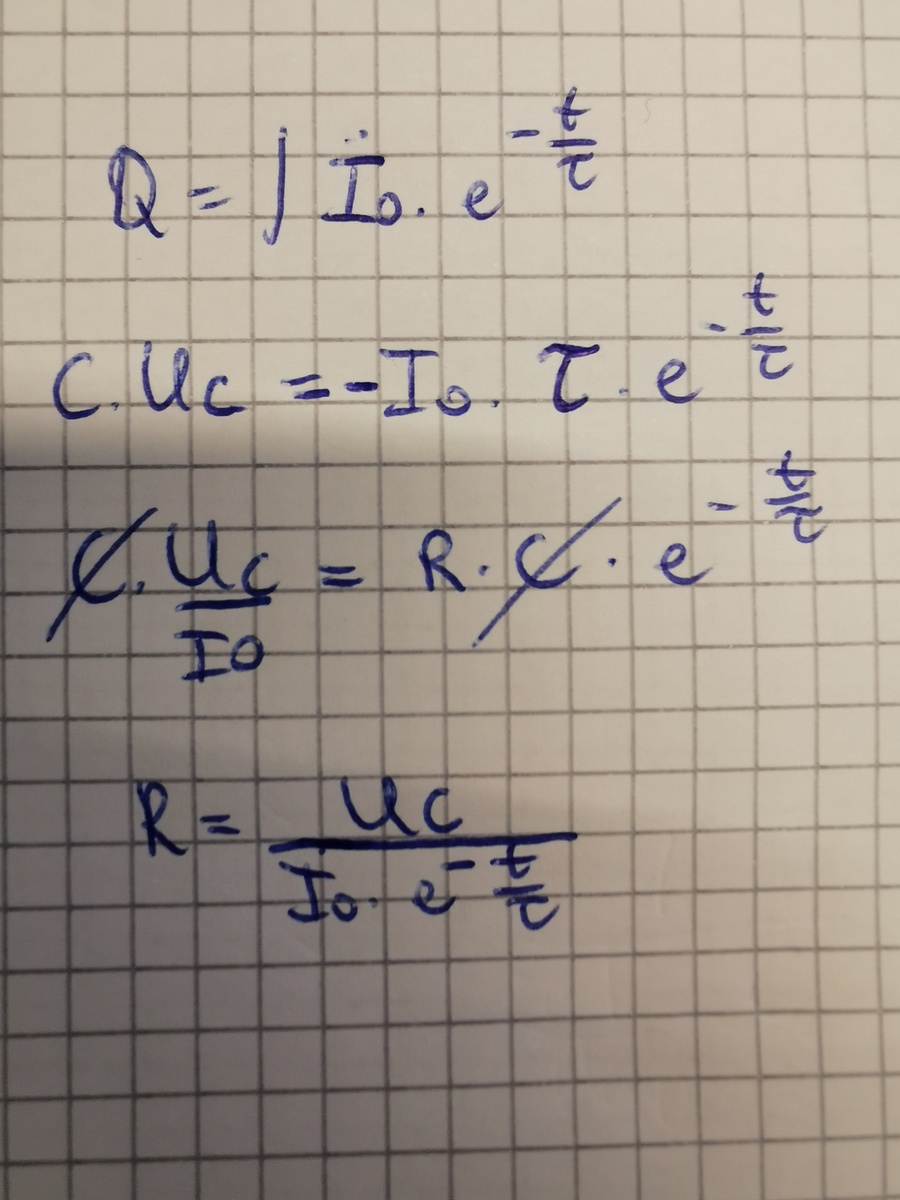 Q = ∫ I₀ · e^(-t/τ)
C · Uc = -I₀ · τ · e^(-t/τ)
C · Uc/I₀ = R · C · e^(-t/τ)
R = Uc/(I₀ · e^(-t/τ))